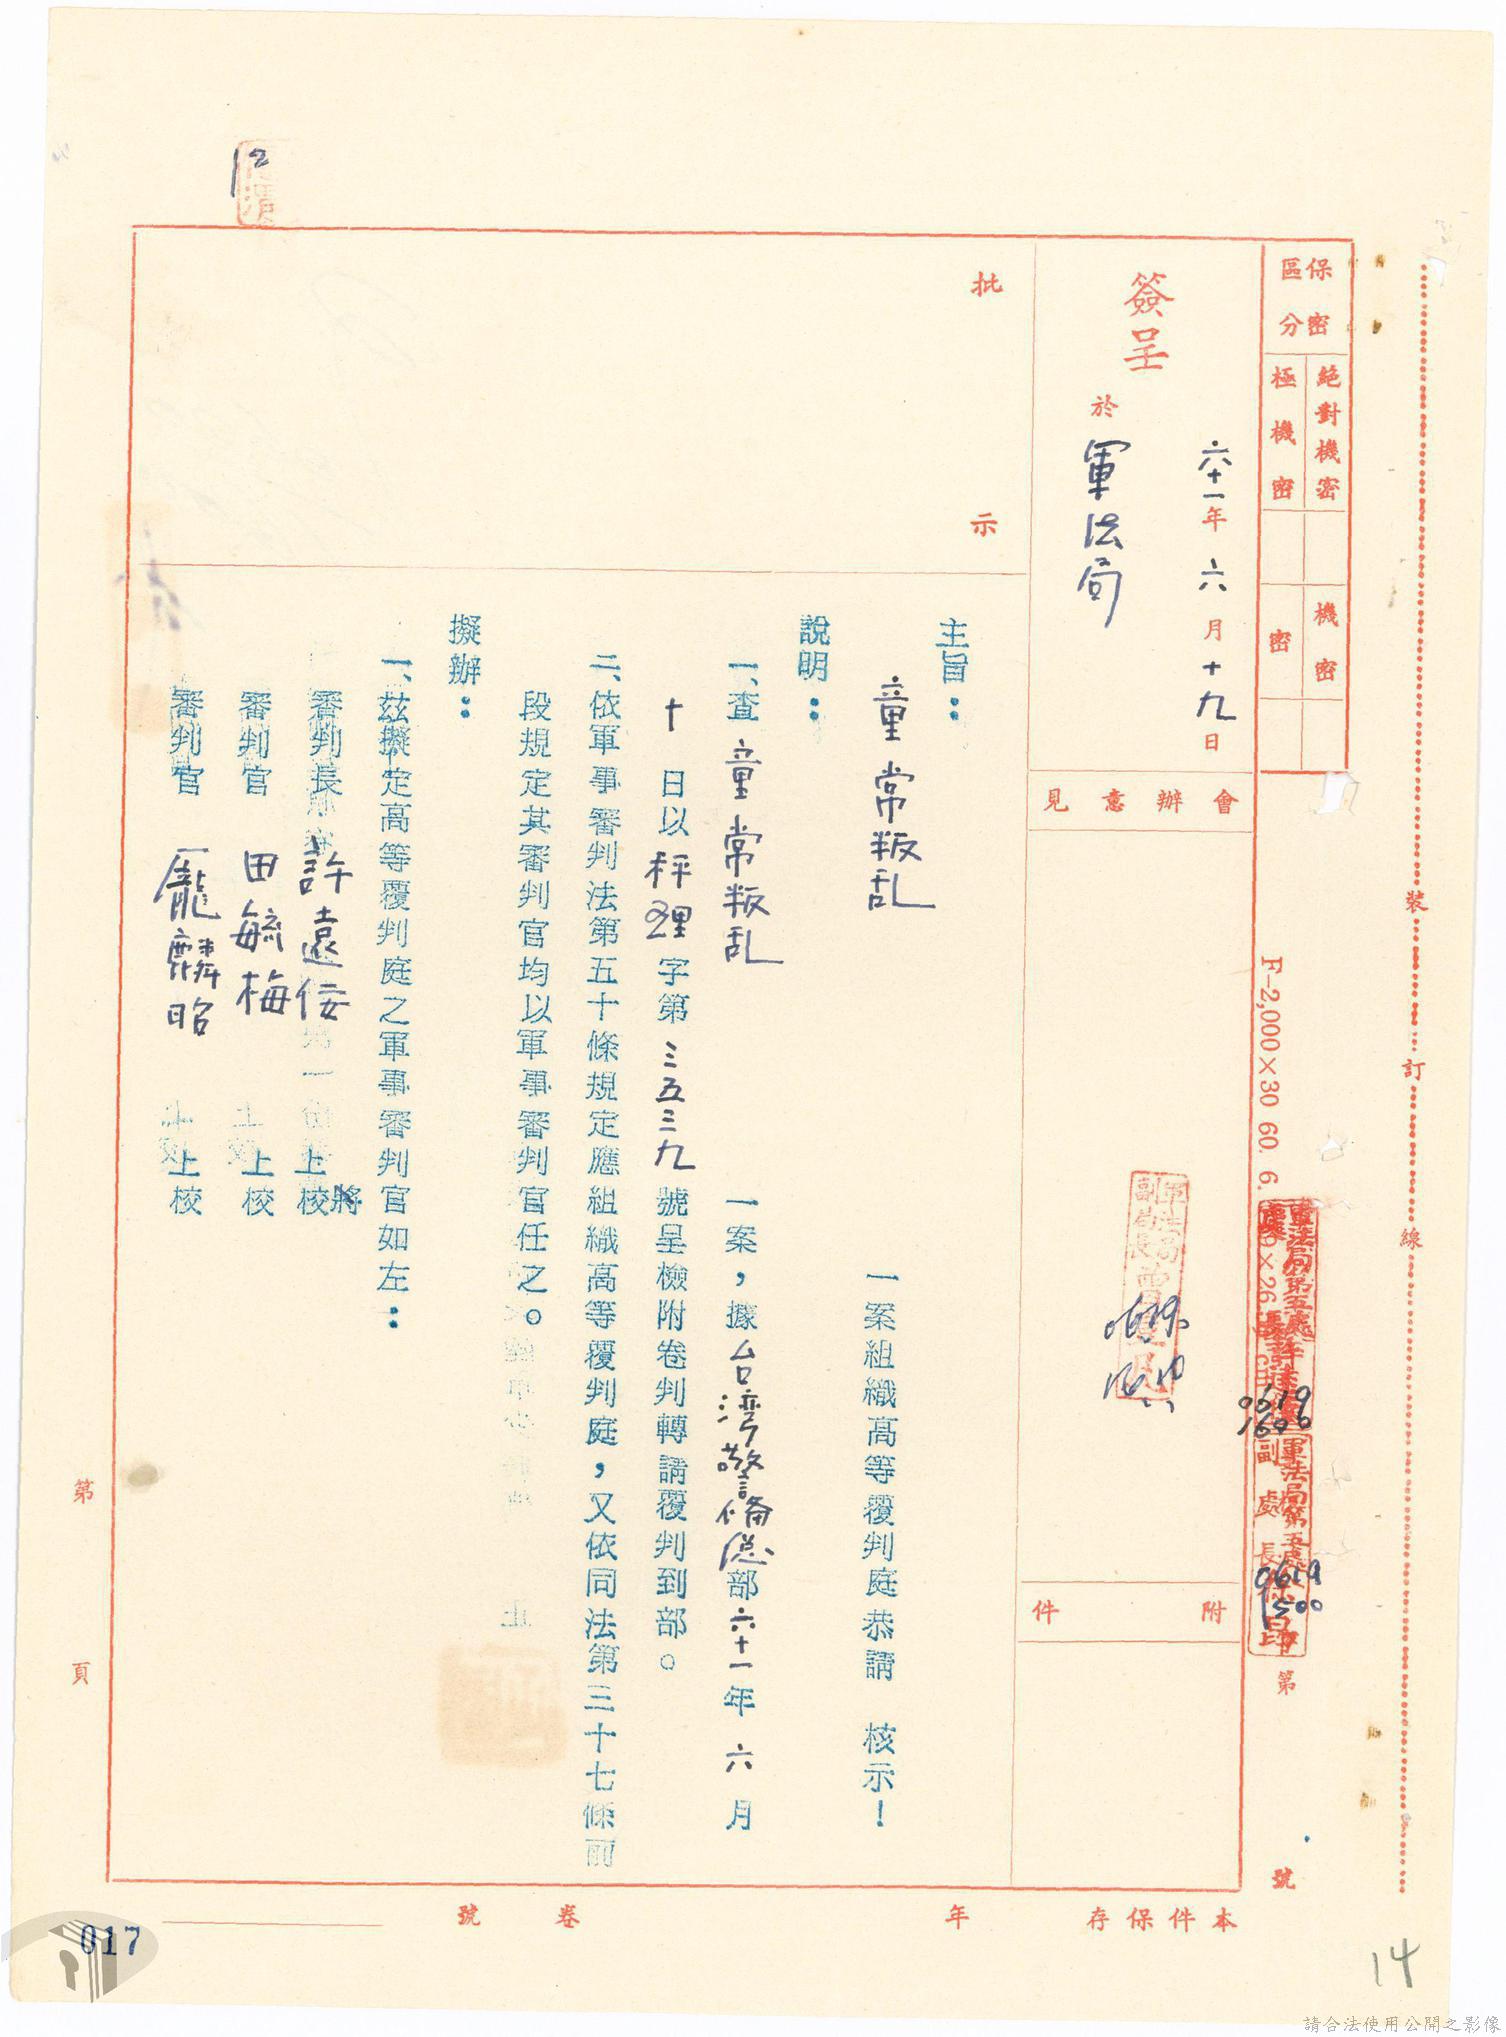 保密區分
絕對機密
極機密
機密
密
裝訂線
F-2,000×30 60. 6.
第
號
軍法局第五處
0619
1600
軍法局第五處
副處長
0619
1500
簽呈
六十一年六月十九日
於軍法局
會辦意見
軍法局
副局長
附件
批示
主旨：
童常叛乱 一案組織高等覆判庭恭請 核示！
說明：
一、查童常叛乱 一案，據台灣警備總部六十一年六月
十日以秤理字第三五三九號呈檢附卷判轉請覆判到部。
二、依軍事審判法第五十條規定應組織高等覆判庭，又依同法第三十七條前
段規定其審判官均以軍事審判官任之。
擬辦：
一、茲擬定高等覆判庭之軍事審判官如左：
審判長 許遠佞 上校
審判官 田毓梅 上校
審判官 龐麟昭 上校
第 頁
本件保存 年 卷 號
12
14
017
請合法使用公開之影像